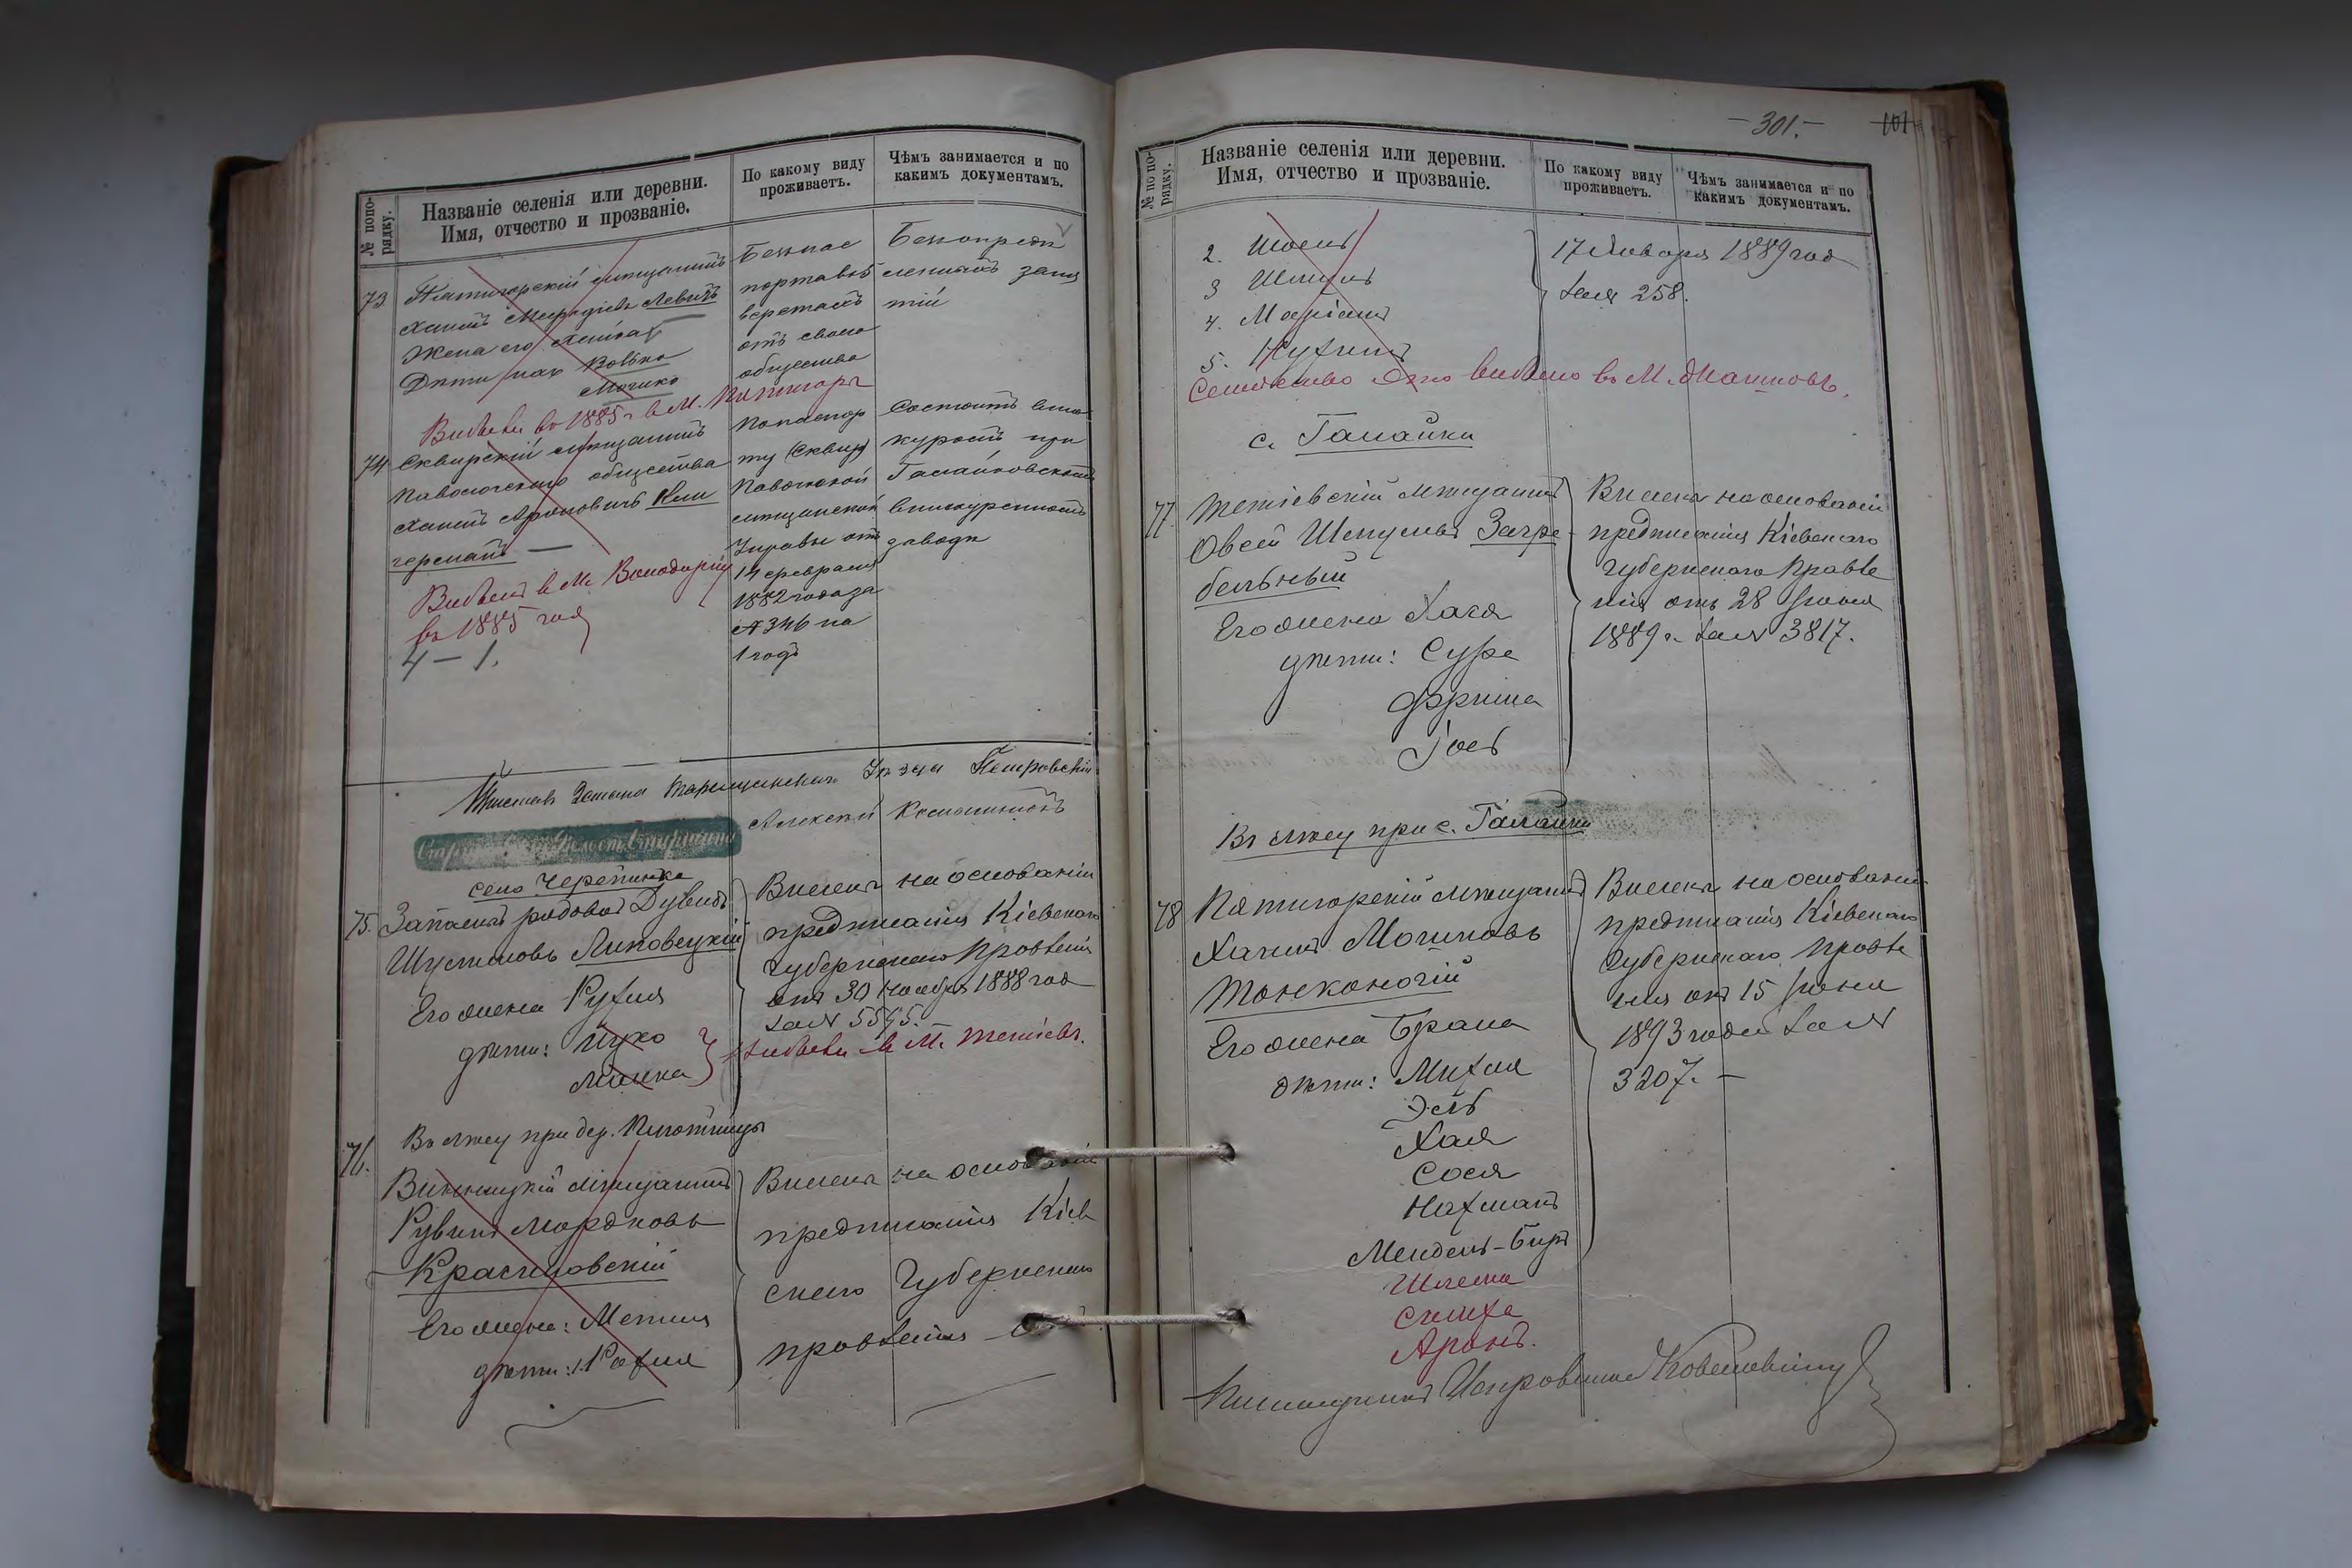 № по по-
рядку.
Названіе селенія или деревни.
Имя, отчество и прозваніе.
По какому виду
проживаетъ.
Чѣмъ занимается и по
какимъ документамъ.
73
Пятигорскій мѣщанинъ
Хаимъ Левитъ
Жена его
Дѣти ихъ Волько
Мошко
Безпас
портавъ
отъ своего
общества
Безопредѣ
леннымъ заня
тій
Выбыли въ 1885 г въ М. Пятигоры
74
Сквирскій мѣщанинъ
Паволочскаго общества
Хаимъ Ароновичъ Кли
германъ —
По паспор
ту Сквир
Паволочской
мѣщанской
Управы отъ
14 февраля
1882 года за
№ 346 на
1 годъ
Состоитъ вино
куромъ при
Галайковскомъ
винокуренномъ
заводѣ
Выбылъ въ М. Володарку
въ 1885 году
4 – 1.
Приставъ 2 стана Таращанскаго Уѣзда Петровскій
Алексѣй
село Черепинка
75.
Запасный рядовой Дувидъ
Шулимовъ Липовецкій
Его жена Рухля
дѣти: Ицко
Малка
Внесенъ на основаніи
предписанія Кіевскаго
Губернскаго Правленія
отъ 30 Ноября 1888 года
за № 5595.
Выбыли въ М. Тетіевъ.
76.
Въ лѣсу при дер.
Винницкій мѣщанинъ
Рувинъ Мордковъ
Красиловскій
Его жена:
дѣти: 1. Рахля
Внесенъ на основаніи
предписанія Кіев
скаго Губернскаго
правленія
– 301. –
101
№ по по-
рядку.
Названіе селенія или деревни.
Имя, отчество и прозваніе.
По какому виду
проживаетъ.
Чѣмъ занимается и по
какимъ документамъ.
2.
3
4.
5.
17 Января 1889 года
за № 258.
Семейство это выбыло въ М.
с. Галайки
77.
Тетіевскій мѣщанинъ
Овсей Шмулевъ Загре
бельный
Его жена Хая
дѣти: Сура
Фрима
Іось
Внесенъ на основаніи
предписанія Кіевскаго
Губернскаго Правле
нія отъ 28 Іюня
1889 г. за № 3817.
Въ лѣсу при с. Галайки
78
Пятигорскій мѣщанинъ
Хаимъ Мошковъ
Тонконогій
Его жена Брана
дѣти: Михля
Эль
Хая
Сося
Нахманъ
Мендель-Беръ
Шлема
Симха
Аронъ.
Внесенъ на основаніи
предписанія Кіевскаго
Губернскаго Правле
нія отъ 15 Іюня
1893 года за №
3207. —